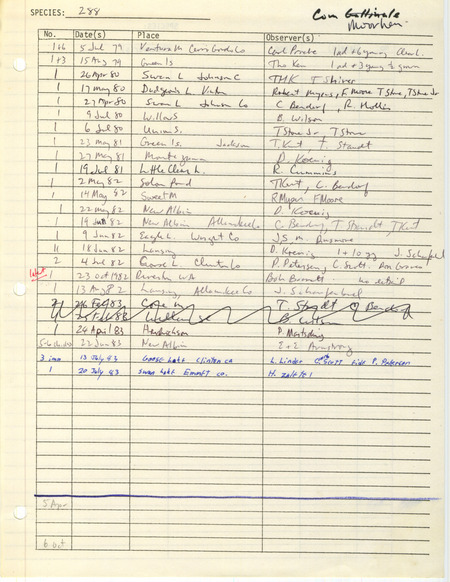 SPECIES: 288 Com Gallinule
Moorhen
No. Date(s) Place Observer(s)
1+6 5 July 79 Ventura M Cerro Gordo Co 1ad + 6 young
1+3 15 Aug 79 Green Is Tho Ken 1ad + 3 young
1 26 Apr 80 Swan L Johnson C THK T Shires
1 17 May 80 Dudgeon's L Robert Myers, F Moore T Stone, T Stone Jr
1 27 Apr 80 Swan L Johnson Co C Bendorf, R. Hollis
1 9 Jul 80 Willow S B. Wilson
1 6 Jul 80 Union S. T Stone Jr, T Stone
1 23 May 81 Green Is. Jackson T. Kent T. Staudt
1 27 May 81 Montezuma D. Koenig
1 19 Jul 81 Little Clear L. R. Cummins
1 2 May 82 Solon Pond T Kent, C. Bendorf
1 14 May 82 Sweet M R Myers F Moore
1 22 May 82 New Albin D. Koenig
1 19 Jun 82 New Albin Allamakee Co C Bendorf, T. Staudt T Kent
1 9 Jun 82 Eagle L. Wright Co J,S, M Dinsmore
11 18 Jun 82 Lansing D. Koenig 1+10 yg J. Schaufenbuel
2 4 Jul 82 Goose L Clinton Co P. Petersen, C. Scott. Ann Graves
23 Oct 1982 Riverton WA Bob Barratt no details
1 13 Aug 82 Lansing, Allamakee Co J. Schaufenbuel
26 Feb 83 Cone M T. Staudt C Bendorf
B Wilson
1 24 April 83 Hendrickson P. Martsching
22 Jun 83 New Albin E + E Armstrong
3 imm 13 July 83 Goose Lake Clinton Co L. Linder C. Scott fide P. Petersen
1 20 July 83 Swan Lake Emmet Co. H. Zaletel
5 Apr
6 Oct